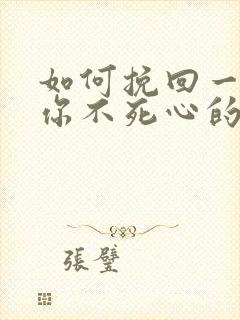 如何挽回一
你不死心的
張璧